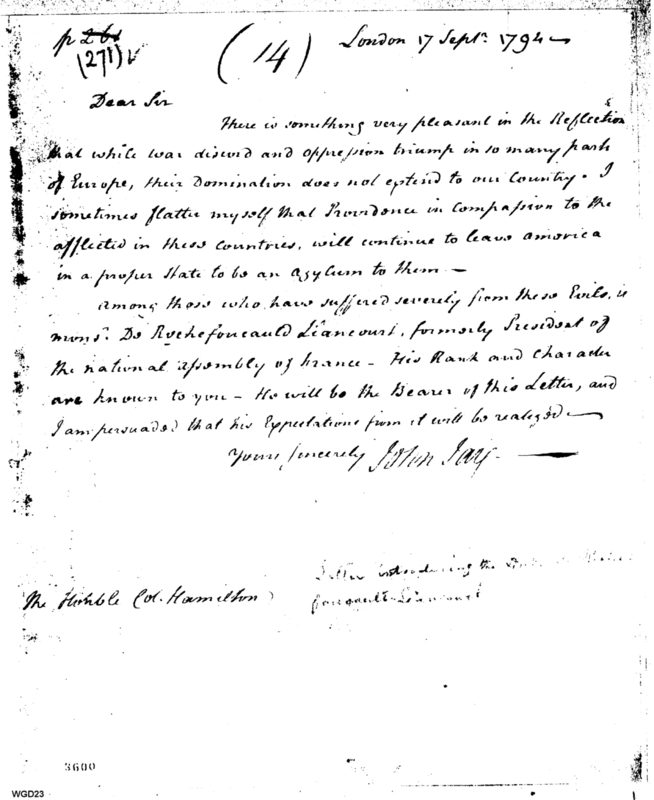 p 26
(271) ✓
(14)
London 17 Sept.r 1794
Dear Sir
There is something very pleasant in the Reflection
that while war discord and oppression triump in so many parts
of Europe, their Domination does not extend to our Country. I
sometimes flatter myself that Providence in compassion to the
afflicted in these countries, will continue to leave america
in a proper state to be an asylum to them —
among those who have suffered severely from these Evils, is
mons.r De Rochefoucauld Liancourt, formerly President of
the national assembly of france — His Rank and character
are known to you — He will be the Bearer of this Letter, and
I am persuaded that his Expectations from it will be realized —
Yours sincerely John Jay —
Letter introducing the
foucault-Liancourt
The Honble Col. Hamilton
3600
WGD23